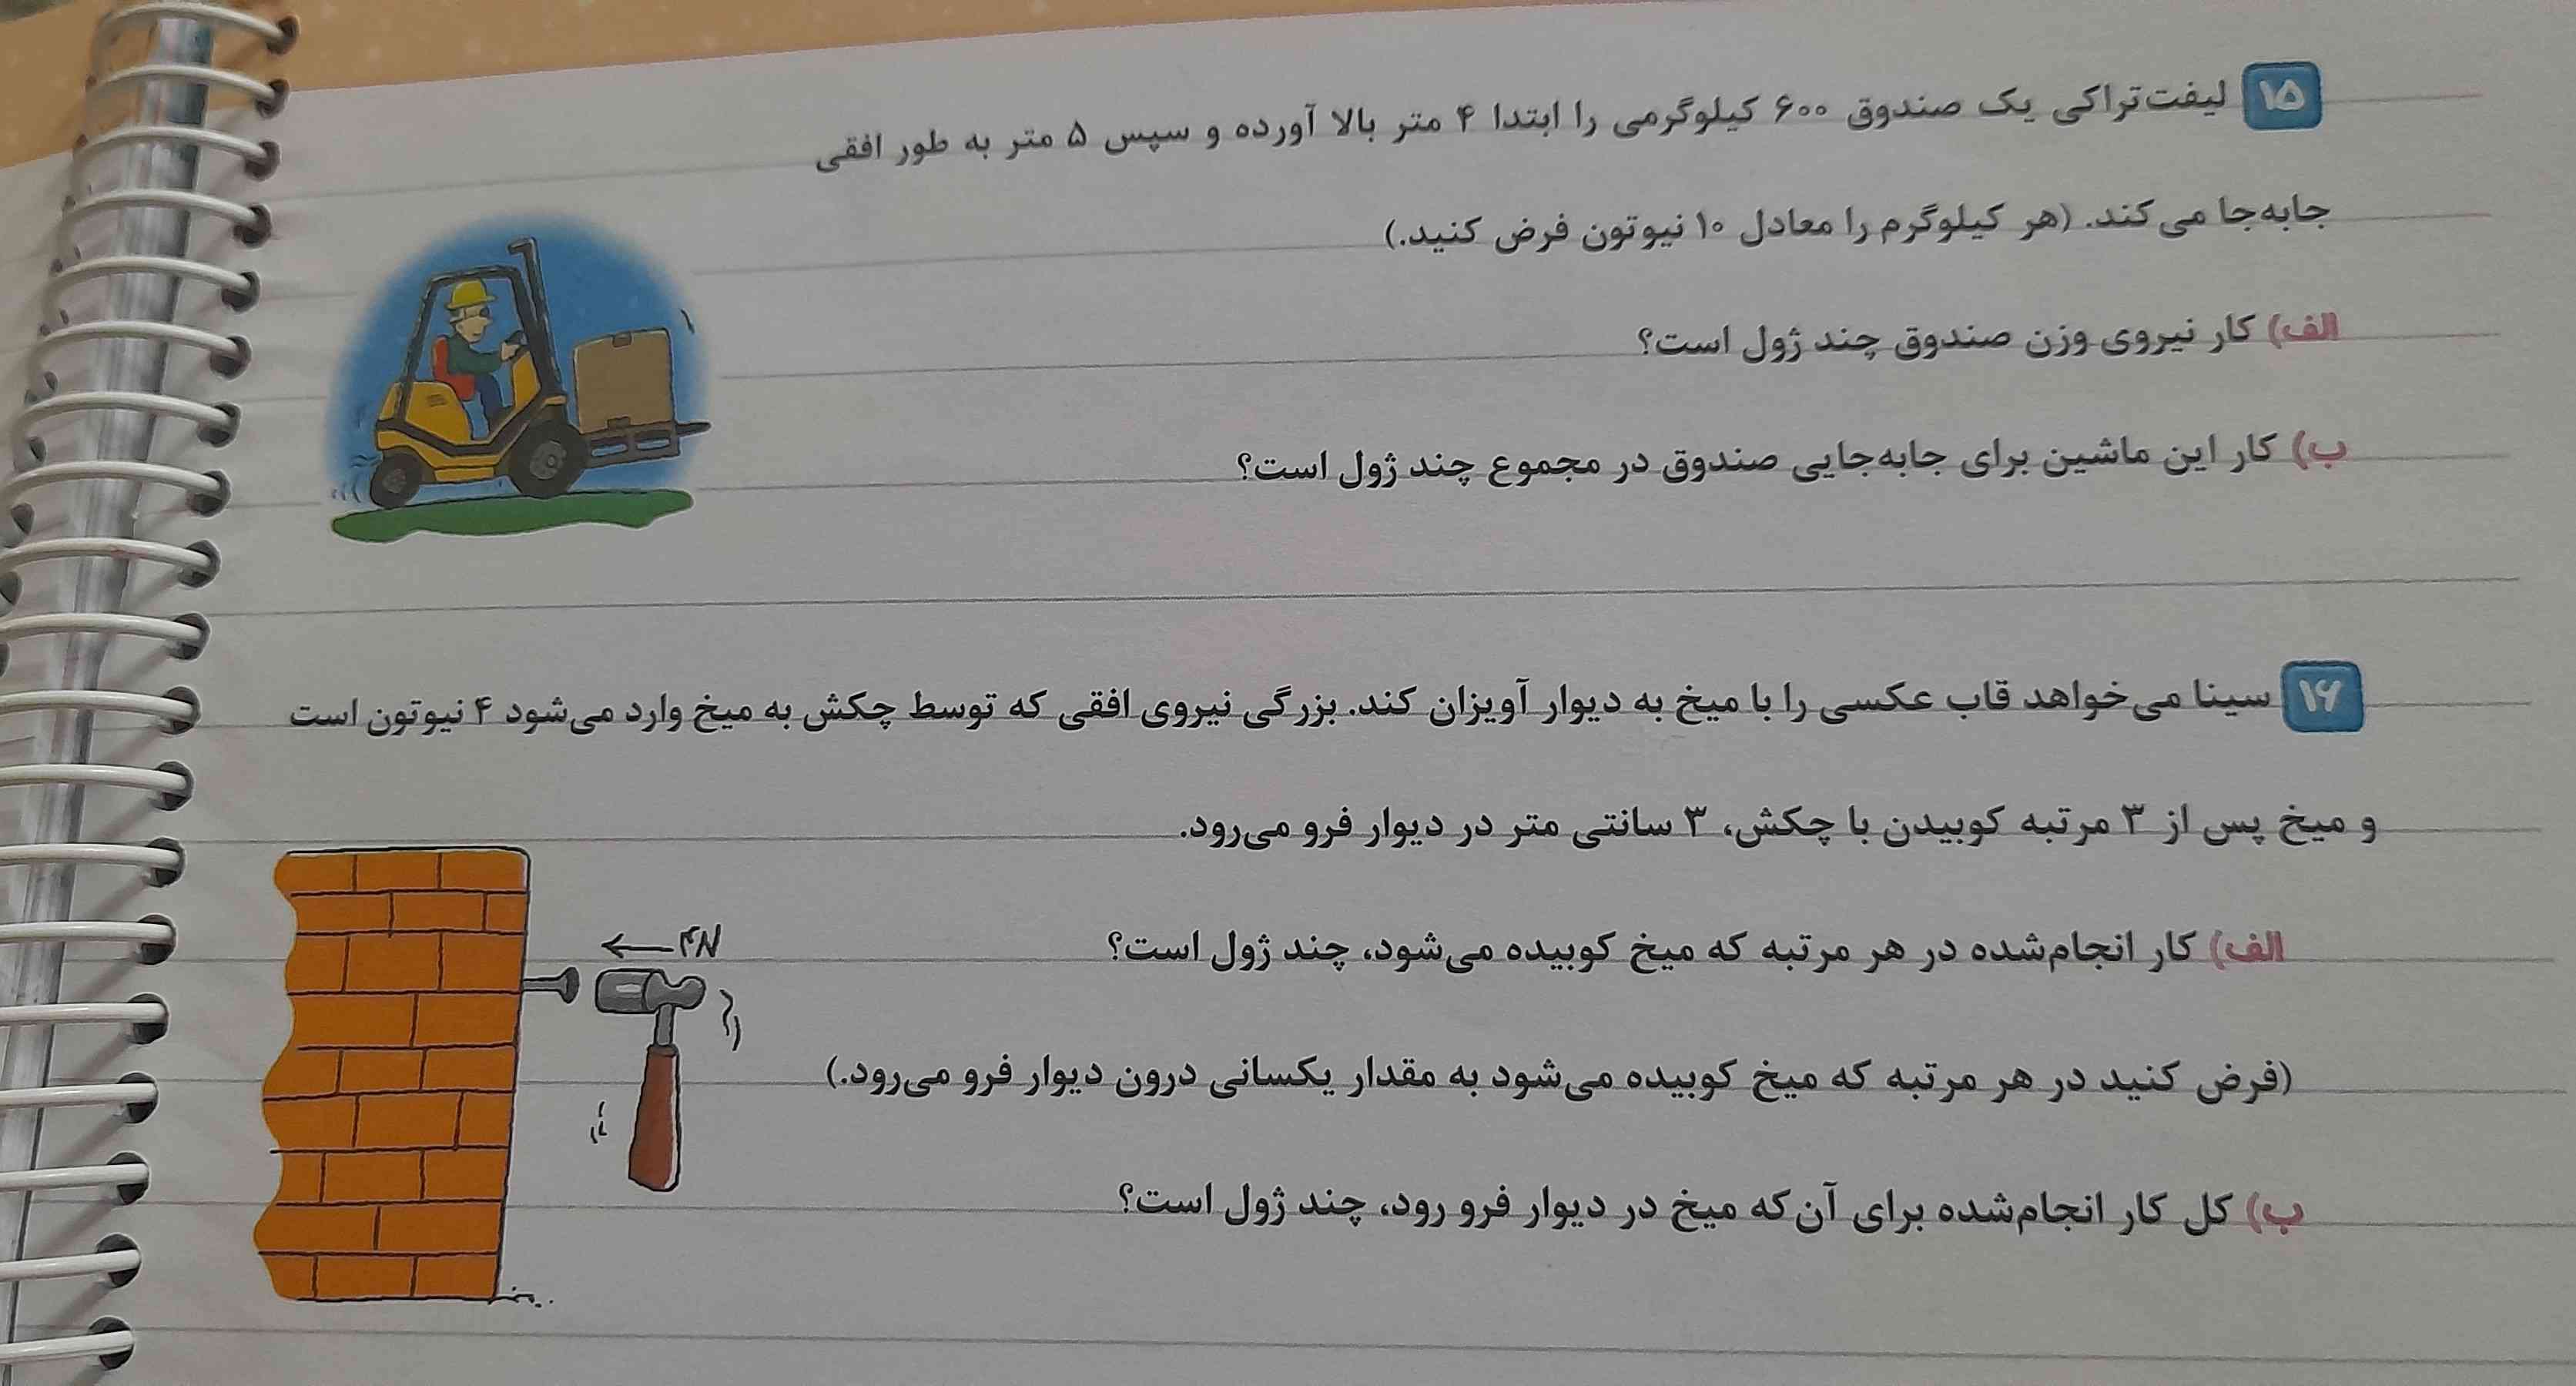 ۱۵ لیفت‌تراکی یک صندوق ۶۰۰ کیلوگرمی را ابتدا ۴ متر بالا آورده و سپس ۵ متر به طور افقی
جابه‌جا می‌کند. (هر کیلوگرم را معادل ۱۰ نیوتون فرض کنید.)
الف) کار نیروی وزن صندوق چند ژول است؟
ب) کار این ماشین برای جابه‌جایی صندوق در مجموع چند ژول است؟
۱۶ سینا می‌خواهد قاب عکسی را با میخ به دیوار آویزان کند. بزرگی نیروی افقی که توسط چکش به میخ وارد می‌شود ۴ نیوتون است
و میخ پس از ۳ مرتبه کوبیدن با چکش، ۳ سانتی متر در دیوار فرو می‌رود.
۴N
الف) کار انجام‌شده در هر مرتبه که میخ کوبیده می‌شود، چند ژول است؟
(فرض کنید در هر مرتبه که میخ کوبیده می‌شود به مقدار یکسانی درون دیوار فرو می‌رود.)
ب) کل کار انجام‌شده برای آن‌که میخ در دیوار فرو رود، چند ژول است؟